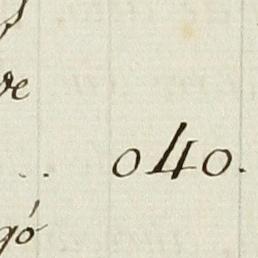 ve
.. 040.
gó